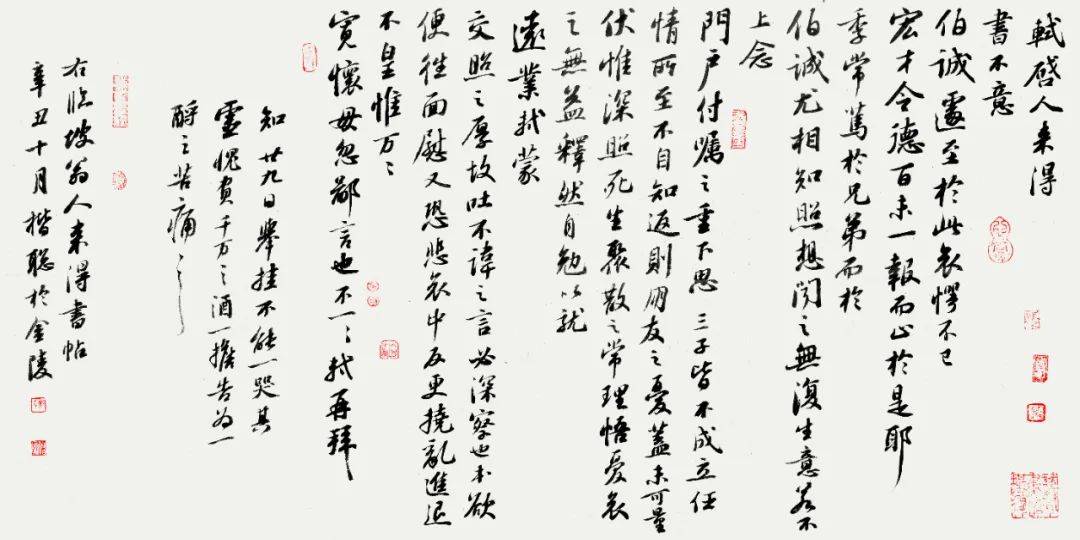 軾启人来得
書不意
伯誠遽至於此哀愕不已
宏才令德百未一報而止於是耶
季常篤於兄弟而於
伯誠尤相知照想闻之無復生意若不
上念
門户付嘱之重下思三子皆不成立任
情所至不自知返則朋友之憂蓋未可量
伏惟深照死生聚散之常理悟憂哀
之無益釋然自勉以就
遠業軾蒙
交照之厚故吐不諱之言必深察也本欲
便往面慰又恐悲哀中反更撓亂進退
不皇惟万〻
寬懷毋忽鄙言也不一〻軾再拜
知廿九日舉挂不能一哭其
靈愧負千万〻酒一擔告为一
酹之苦痛〻
右臨坡翁人来得書帖
辛丑十月楷聪於金陵